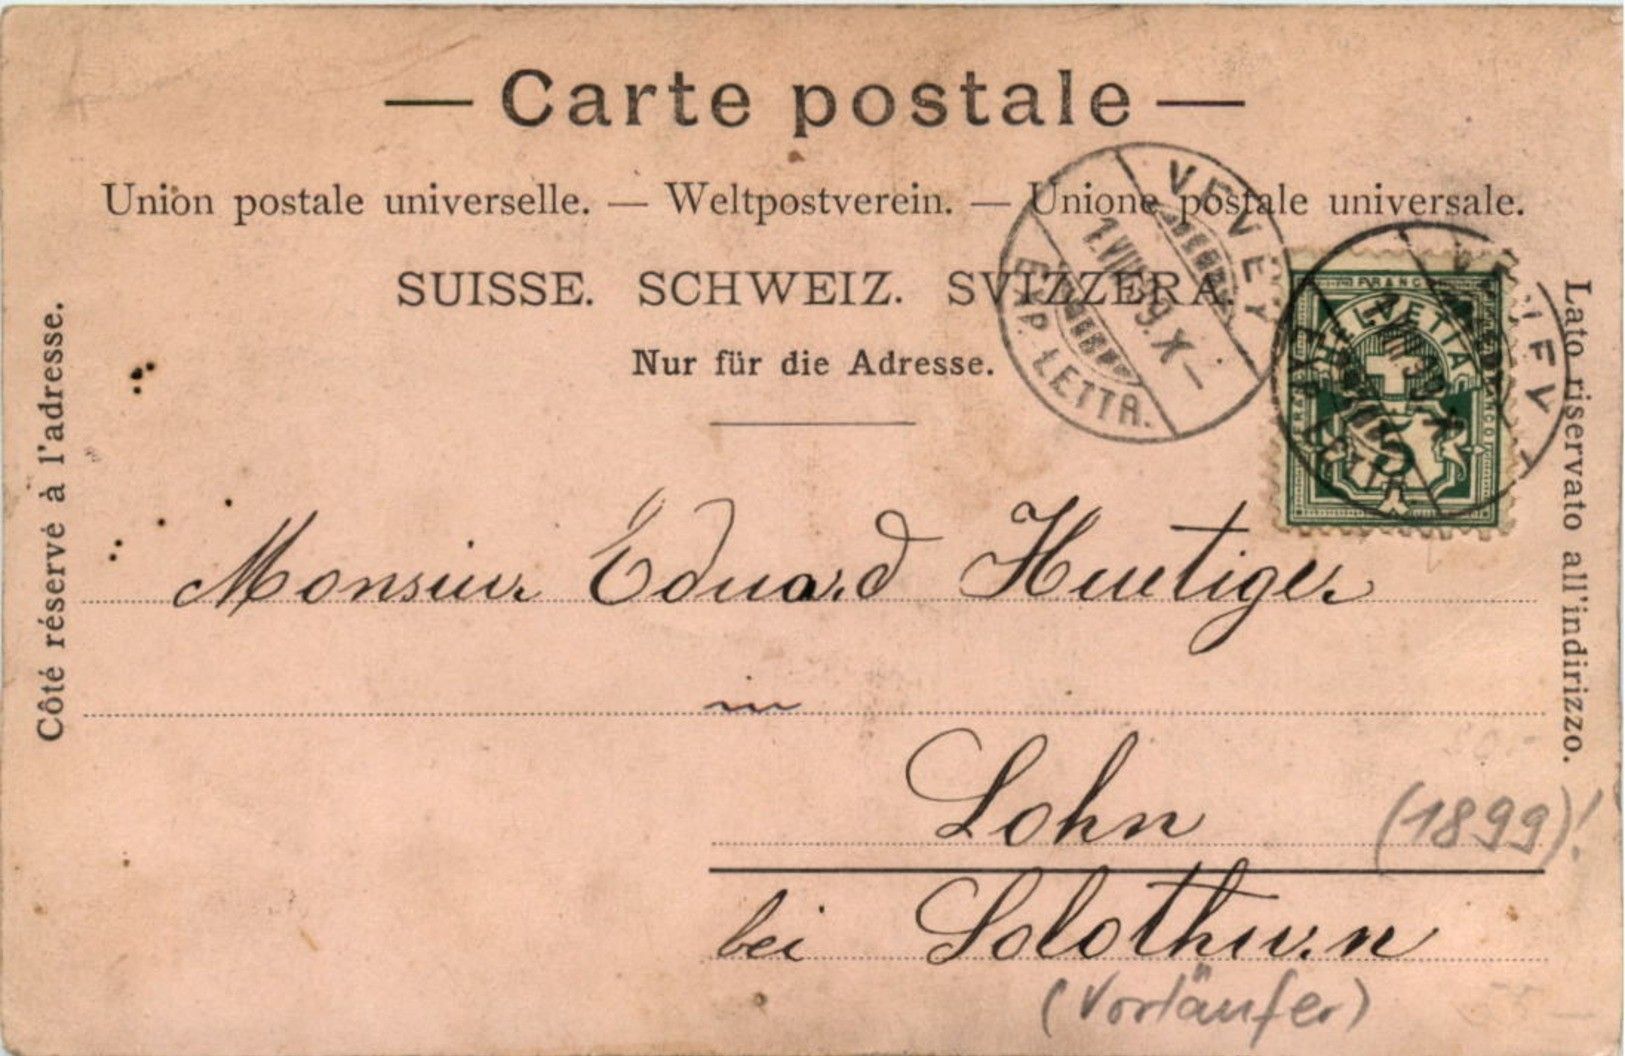 — Carte postale —
Union postale universelle. — Weltpostverein. — Unione postale universale.
SUISSE. SCHWEIZ. SVIZZERA.
Nur für die Adresse.
Côté réservé à l'adresse.
Lato riservato all'indirizzo.
VEVEY
1.VIII.99.X—
EXP. LETTR.
VEVEY
EXP. LETTR.
FRANCO
HELVETIA
5
Monsieur Eduard Huetiger
in
Lohn
(1899)!
bei Solothurn
(Vorläufer)